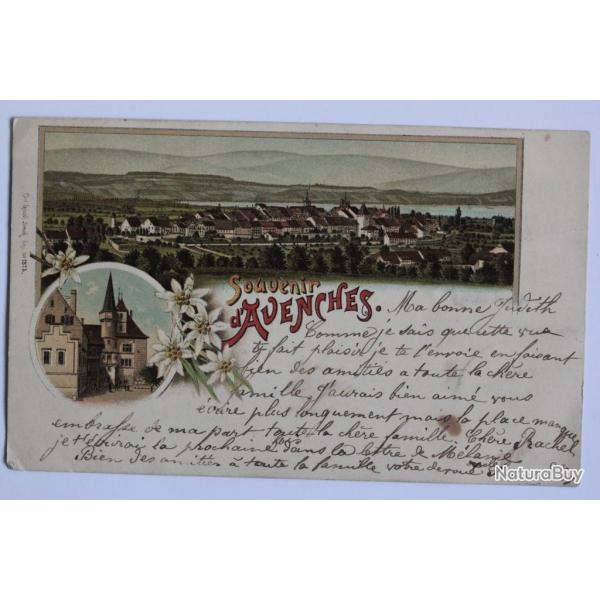 Souvenir
d'AVENCHES.
Ma bonne Judith
Comme je sais que cette vue
ty fait plaisir je te l'envoie en faisant
bien des amitiés a toute la chère
famille J'aurais bien aimé vous
écrire plus longuement mais la place manque
embrasse de ma part toute la chère famille Chère Rachel
je t'écrirai la prochaine fois dans la lettre de Mélanie
Bien des amitiés à toute la famille votre dévoué
NaturaBuy